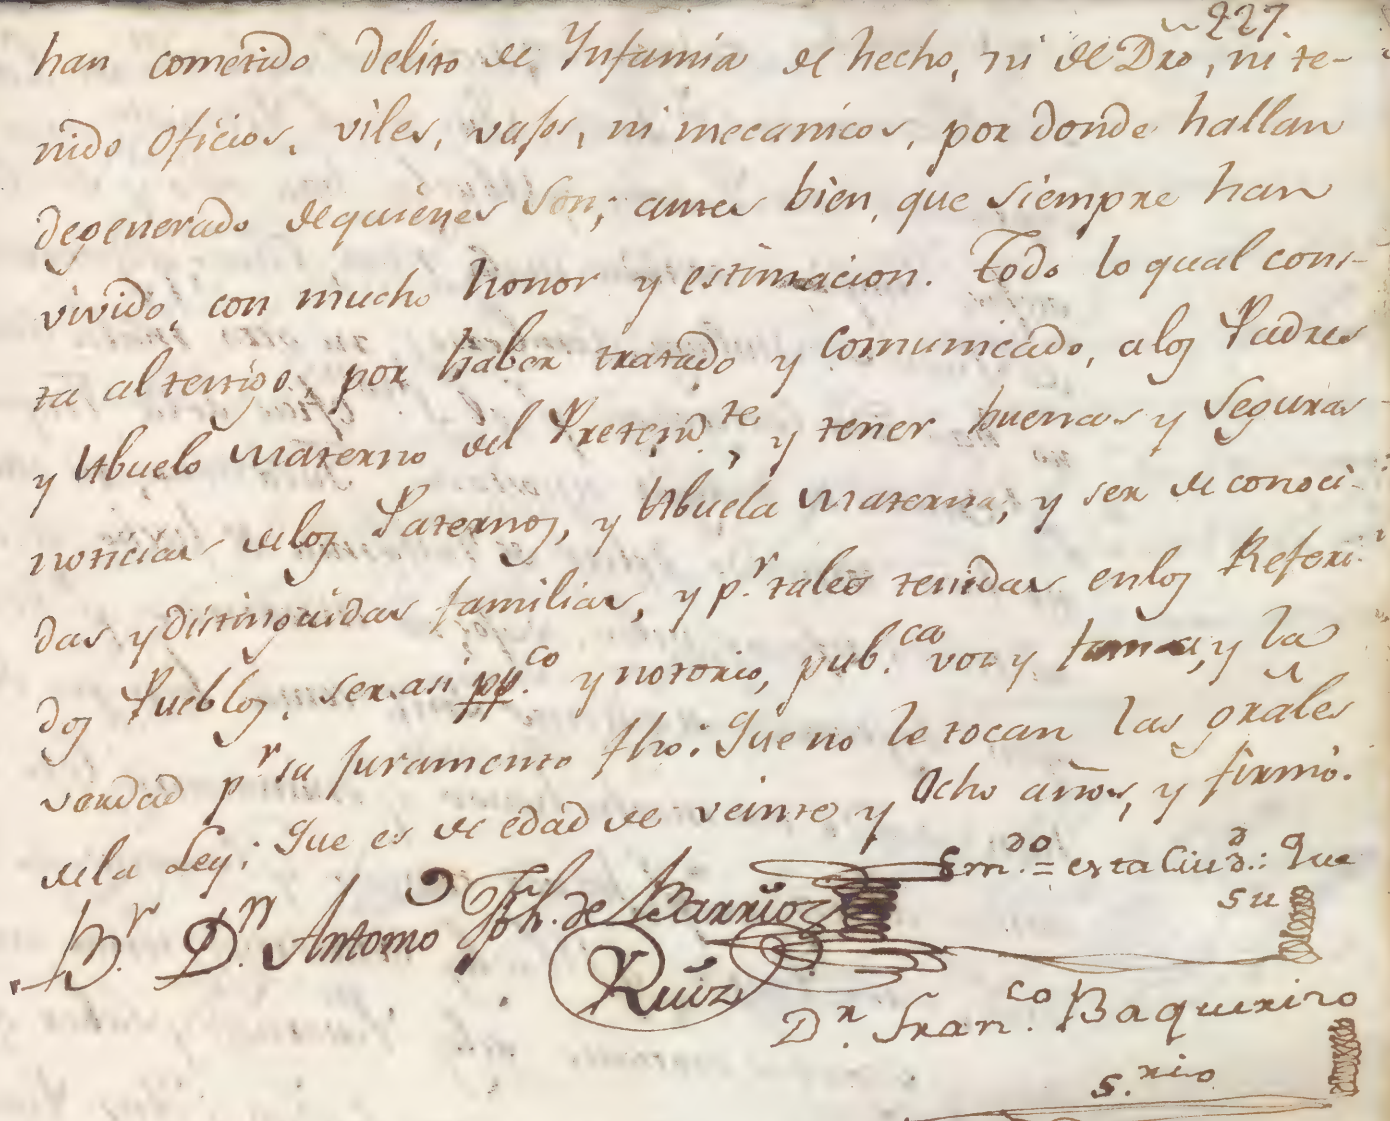 227.
han cometido delito de Ynfamia de hecho, ni de Dro, ni te-
nido oficios, viles, vajos, ni mecanicos, por donde hallan
degenerado dequienes son; antes bien, que siempre han
vivido, con mucho honor y estimacion. Todo lo qual cons-
ta altestigo, por haber tratado y comunicado, alos Padres
y Abuelo Materno del Pretend.te y tener buenas y seguras
noticias delos Paternos, y Abuela Materna, y ser de conoci-
das y distinguidas familias, y p.r tales tenidas enlos Referi-
dos Pueblos, ser asi pp.co y notorio, pub.ca voz y fama, y la
verdad p.r su juramento fho: Que no le tocan las grãles
dela Ley: Que es de edad de veinte y ocho años, y firmó.
Em.do = esta Ciud.d: Que
su
B.r D.n Antonio Jph. de Barrios
Ruiz
D.n Fran.co Baqueriso
s.rio